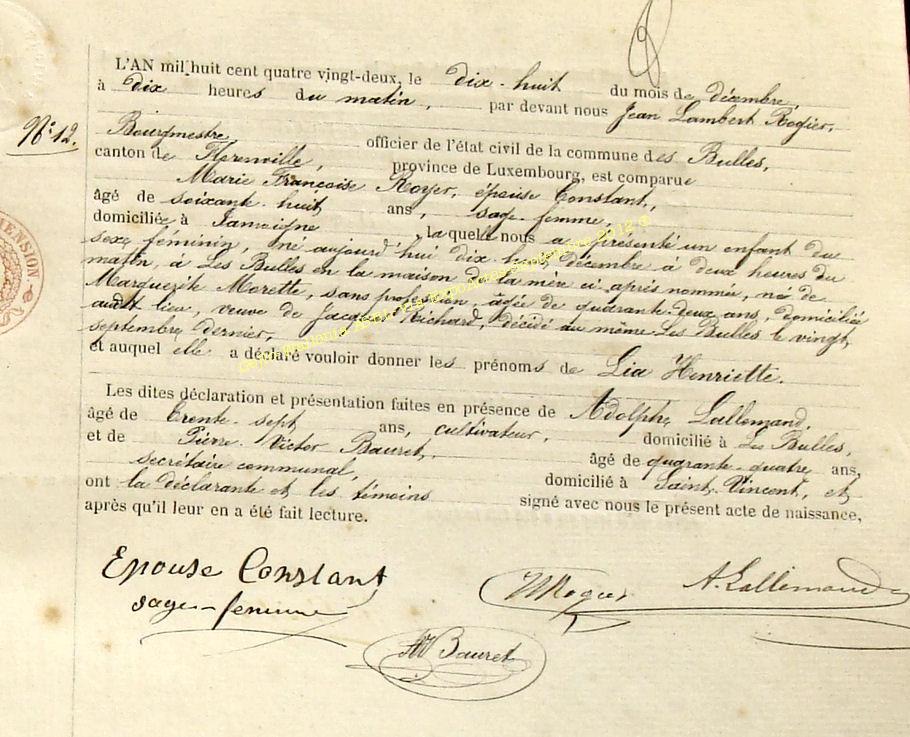 L'AN mil huit cent quatre vingt-deux, le dix-huit du mois de décembre,
à dix heures du matin, par devant nous Jean Lambert Rogier,
N° 12.
Bourgmestre officier de l'état civil de la commune des Bulles,
canton de Florenville, province de Luxembourg, est comparue
Marie Françoise Royer, épouse Constant,
âgé de soixante-huit ans, sage-femme,
domiciliée à Jamoigne, laquelle nous a présenté un enfant du
sexe féminin, né aujourd'hui dix huit décembre à deux heures du
matin, à Les Bulles en la maison de la mère ci après nommée, né de
Marguerite Morette, sans profession, agée de quarante-deux ans, domiciliée
audit lieu, veuve de Jacques Richard, décédé au même Les Bulles le vingt
septembre dernier,
et auquel elle a déclaré vouloir donner les prénoms de Lia Henriette.
Les dites déclaration et présentation faites en présence de Adolphe Lallemand,
âgé de trente-sept ans, cultivateur, domicilié à Les Bulles,
et de Pierre-Victor Bauret, âgé de quarante-quatre ans,
secrétaire communal, domicilié à Saint-Vincent, et
ont la déclarante et les témoins signé avec nous le présent acte de naissance,
après qu'il leur en a été fait lecture.
Epouse Constant
sage-femme
A. Lallemand
Bauret
ENSION